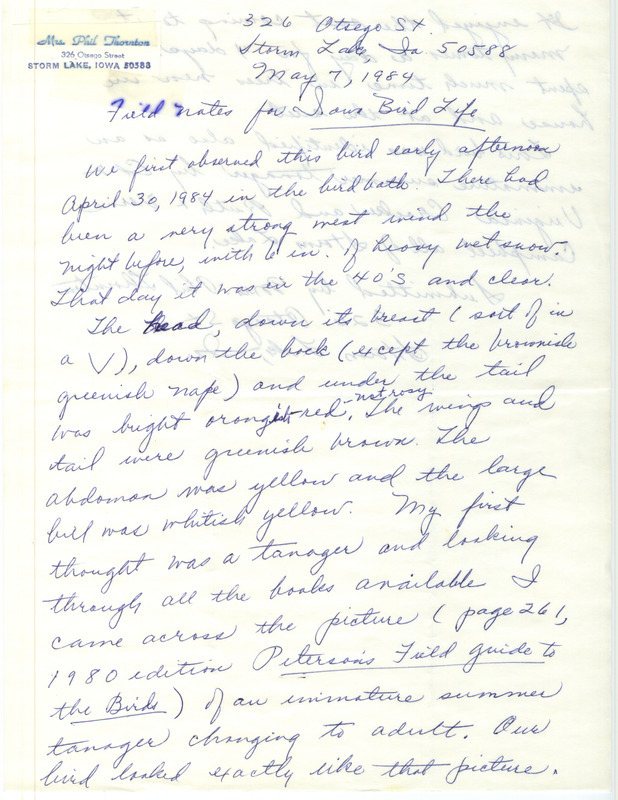 Mrs. Phil Thornton
326 Otsego Street
STORM LAKE, IOWA 50588
326 Otsego St.
Storm Lake, Ia. 50588
May 7, 1984
Field notes for Iowa Bird Life
We first observed this bird early afternoon
April 30, 1984 in the bird bath. There had
been a very strong west wind the
night before, with 6 in. of heavy wet snow.
That day it was in the 40's and clear.
The head, down its breast (sort of in
a V), down the back (except the brownish
greenish nape) and under the tail
was bright orangish red, not rosy. The wings and
tail were greenish brown. The
abdomon was yellow and the large
bill was whitish yellow. My first
thought was a tanager and looking
through all the books available I
came across the picture (page 261,
1980 edition Peterson's Field guide to
the Birds) of an immature summer
tanager changing to adult. Our
bird looked exactly like that picture.